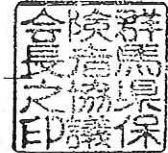 群馬県保
険者協議
会長之印